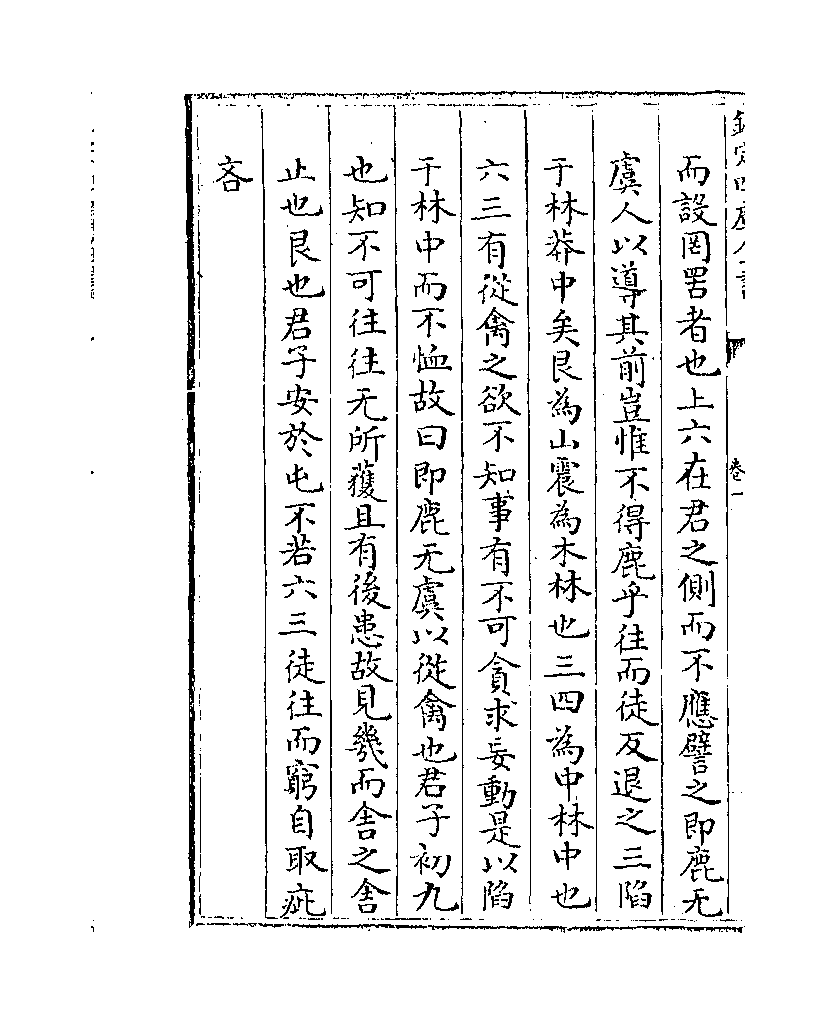 欽定四庫全書
卷一
而設罔罟者也上六在君之側而不應譬之即鹿无
虞人以導其前豈惟不得鹿乎往而徒反退之三陷
于林莽中矣艮為山震為木林也三四為中林中也
六三有從禽之欲不知事有不可貪求妄動是以陷
于林中而不恤故曰即鹿无虞以從禽也君子初九
也知不可往往无所獲且有後患故見幾而舍之舍
止也艮也君子安於屯不若六三徒往而窮自取疵
吝